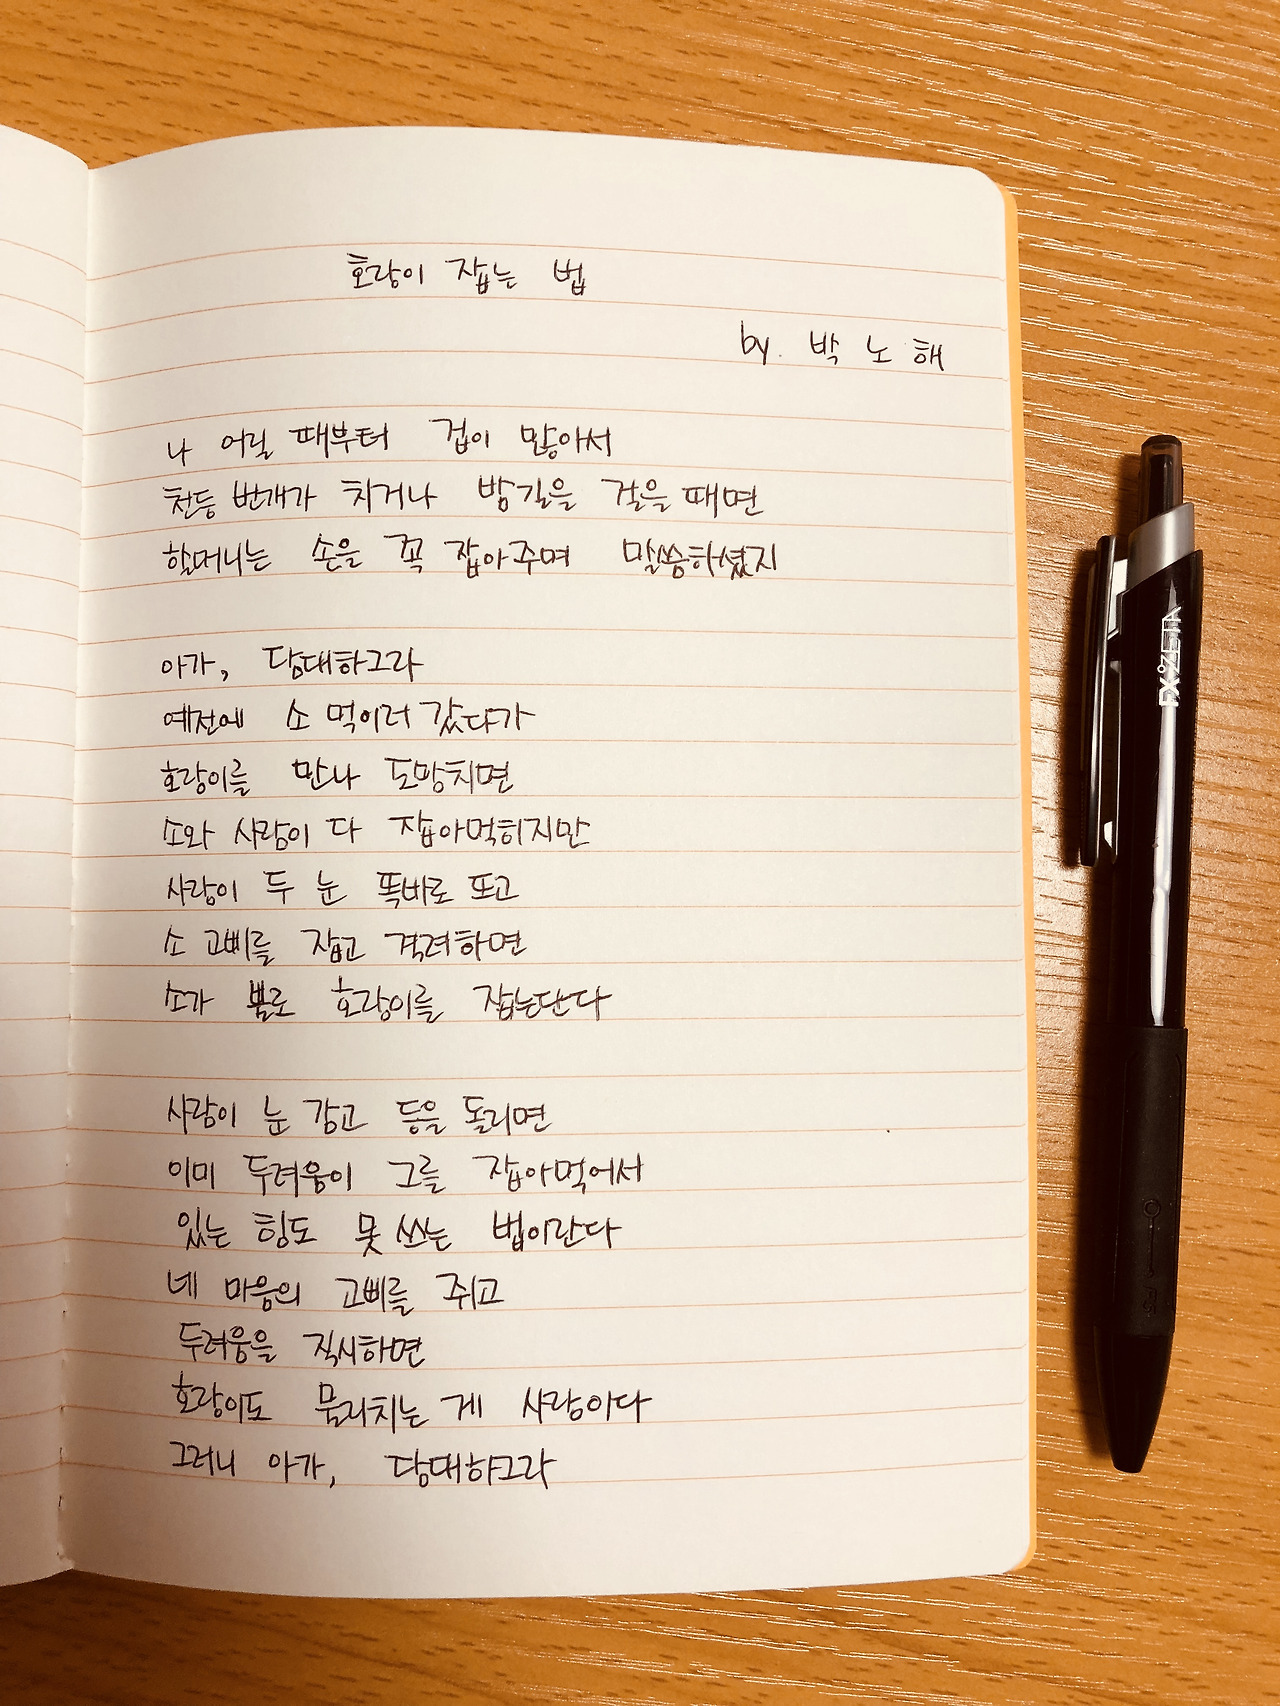 호랑이 잡는 법
by. 박노해
나 어릴 때부터 겁이 많아서
천둥 번개가 치거나 밤길을 걸을 때면
할머니는 손을 꼭 잡아주며 말씀하셨지
아가, 담대하그라
예전에 소 먹이러 갔다가
호랑이를 만나 도망치면
소와 사람이 다 잡아먹히지만
사람이 두 눈 똑바로 뜨고
소 고삐를 잡고 격려하면
소가 뿔로 호랑이를 잡는단다
사람이 눈 감고 등을 돌리면
이미 두려움이 그를 잡아먹어서
있는 힘도 못 쓰는 법이란다
네 마음의 고삐를 쥐고
두려움을 직시하면
호랑이도 물리치는 게 사람이다
그러니 아가, 담대하그라
FX ZETA